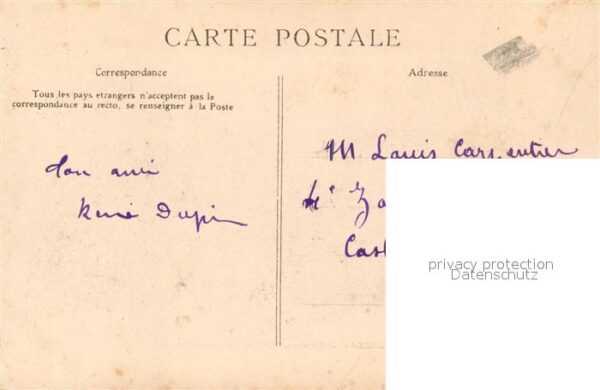 CARTE POSTALE
Correspondance
Tous les pays étrangers n'acceptent pas la
correspondance au recto, se renseigner à la Poste
Adresse
Ton ami
René Dupin
M Louis Carpentier
4e
privacy protection
Datenschutz